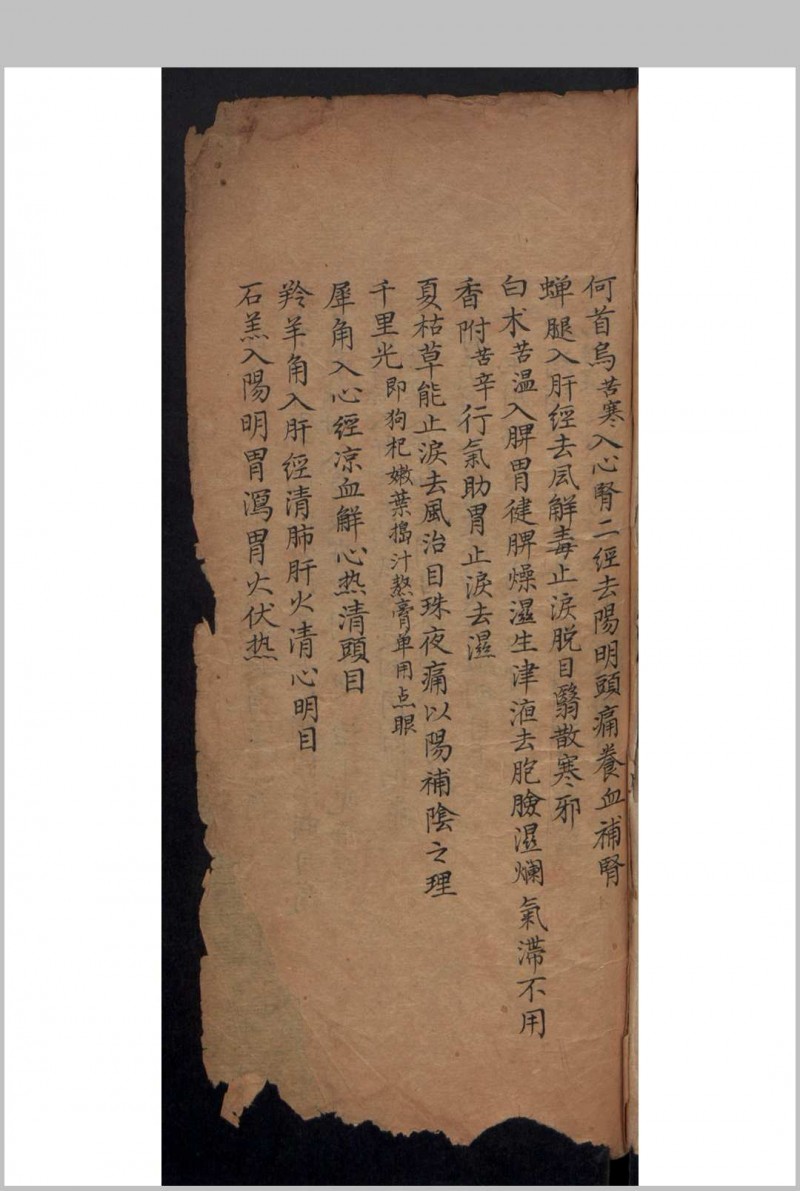 何首烏苦寒入心腎二經去陽明頭痛養血補腎
蟬腿入肝經去风解毒止淚脱目翳散寒邪
白朮苦温入脾胃健脾燥濕生津液去胞臉濕爛氣滯不用
香附苦辛行氣助胃止淚去濕
夏枯草能止淚去風治目珠夜痛以陽補陰之理
千里光即狗杞嫩葉搗汁熬膏单用点眼
犀角入心經凉血解心热清頭目
羚羊角入肝經清肺肝火清心明目
石羔入陽明胃瀉胃火伏热